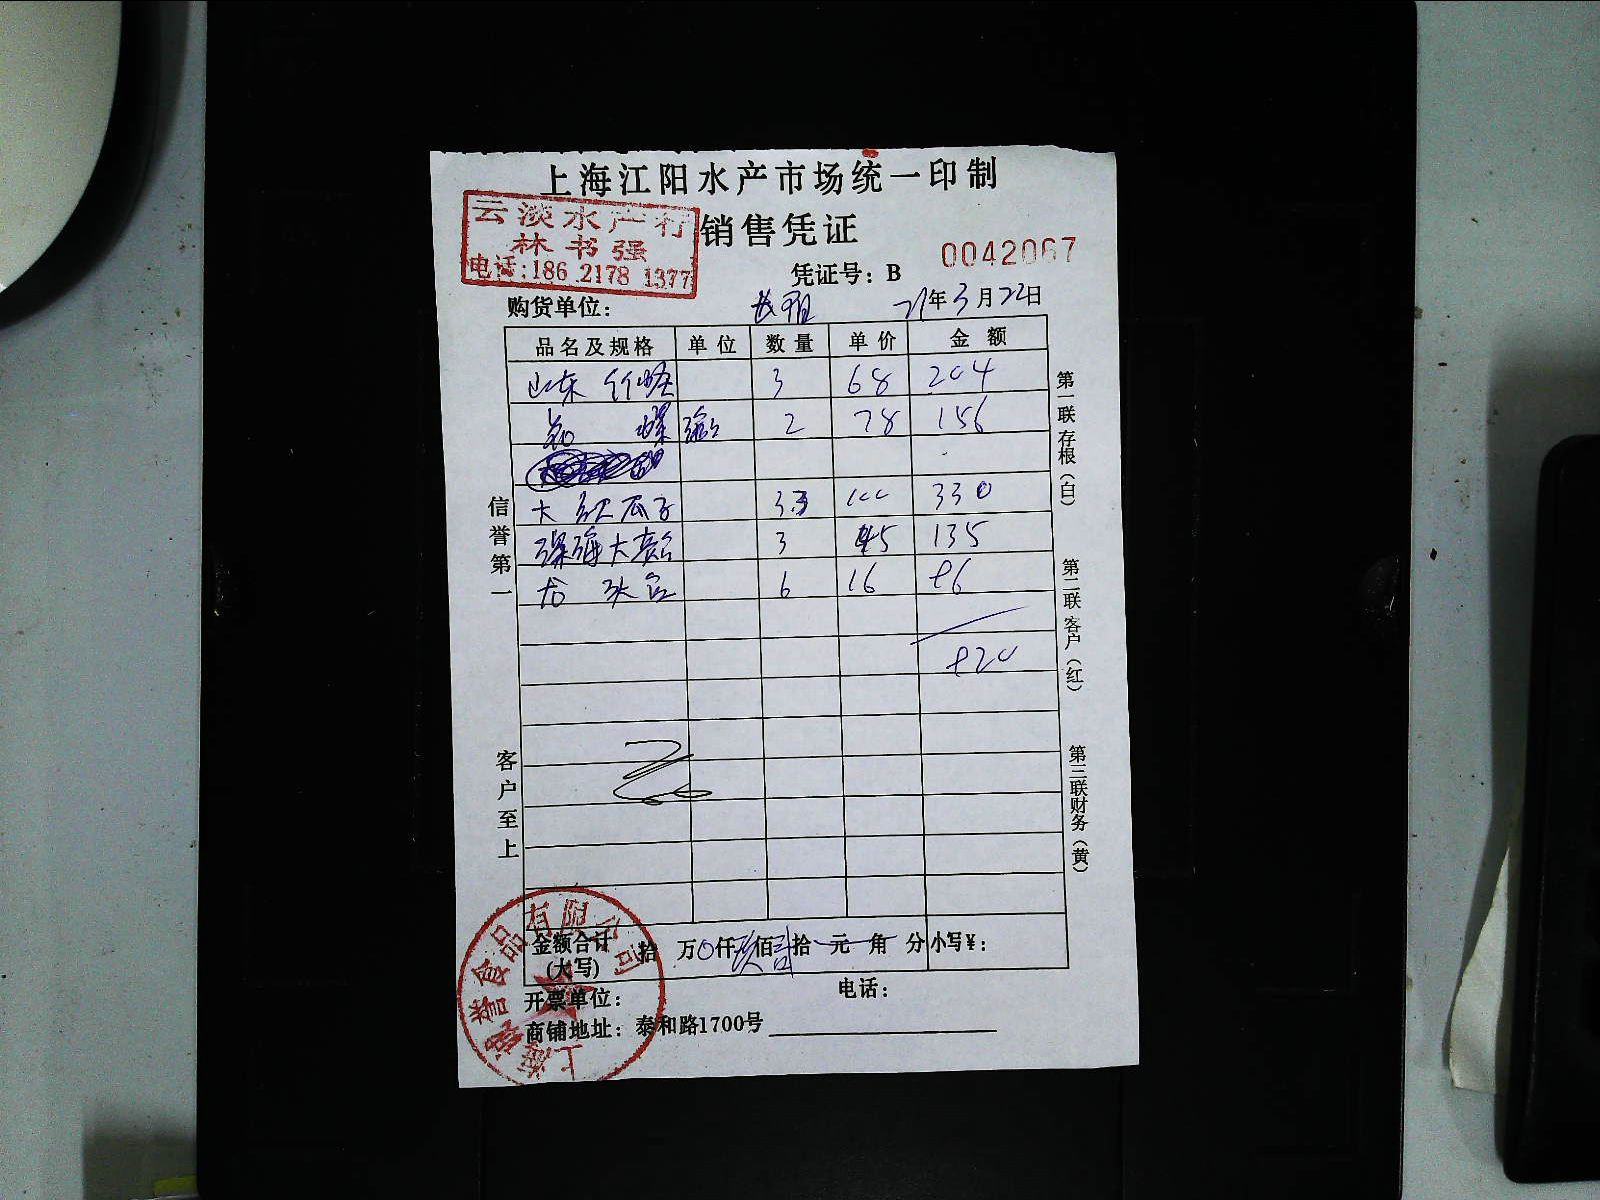 上海江阳水产市场统一印制
云淡水产行
林书强
电话:186 2178 1377
销售凭证
凭证号：B 0042067
购货单位： 21年3月22日
品名及规格 单位 数量 单价 金额
山东 竹蛏 3 68 204
螺 2 78 156
大红瓜子 3.3 100 330
深海大 3 45 135
龙头 6 16 96
920
信誉第一
客户至上
第一联存根（白）
第二联客户（红）
第三联财务（黄）
金额合计(大写) 拾 万0仟玖佰贰拾 元 角 分 小写¥：
开票单位： 电话：
商铺地址：泰和路1700号
上海 誉食品有限公司